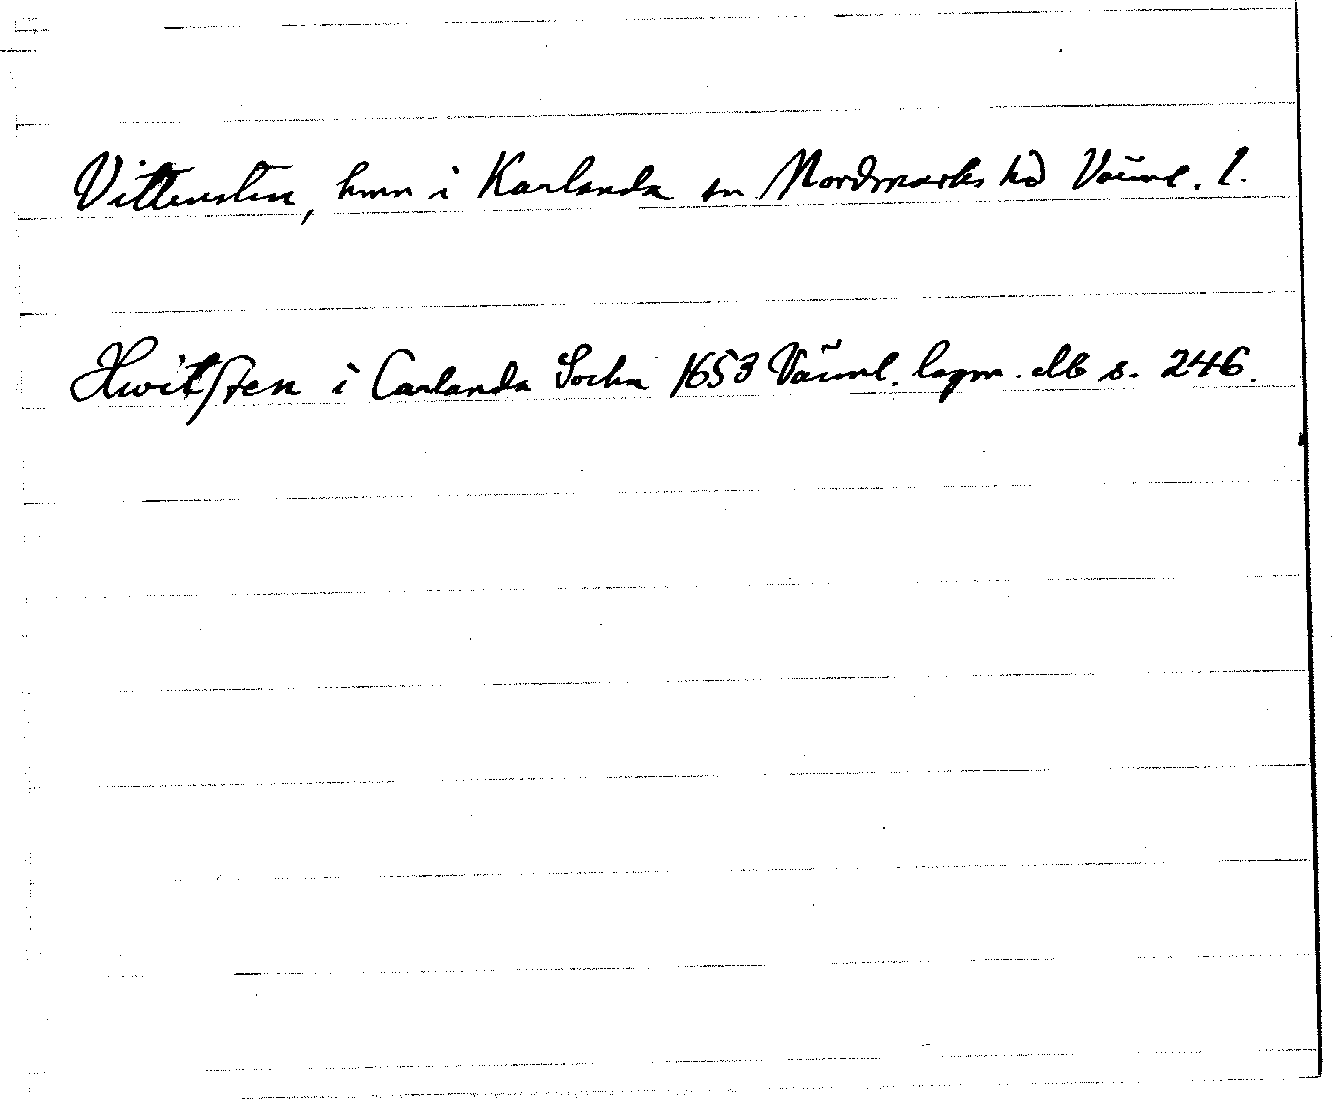 Vittensten, hmn i Karlanda sn Nordmarks hd Värml. l.
Hwitsten i Carlanda Sochn 1653 Värml. lagm. dlb s. 246.